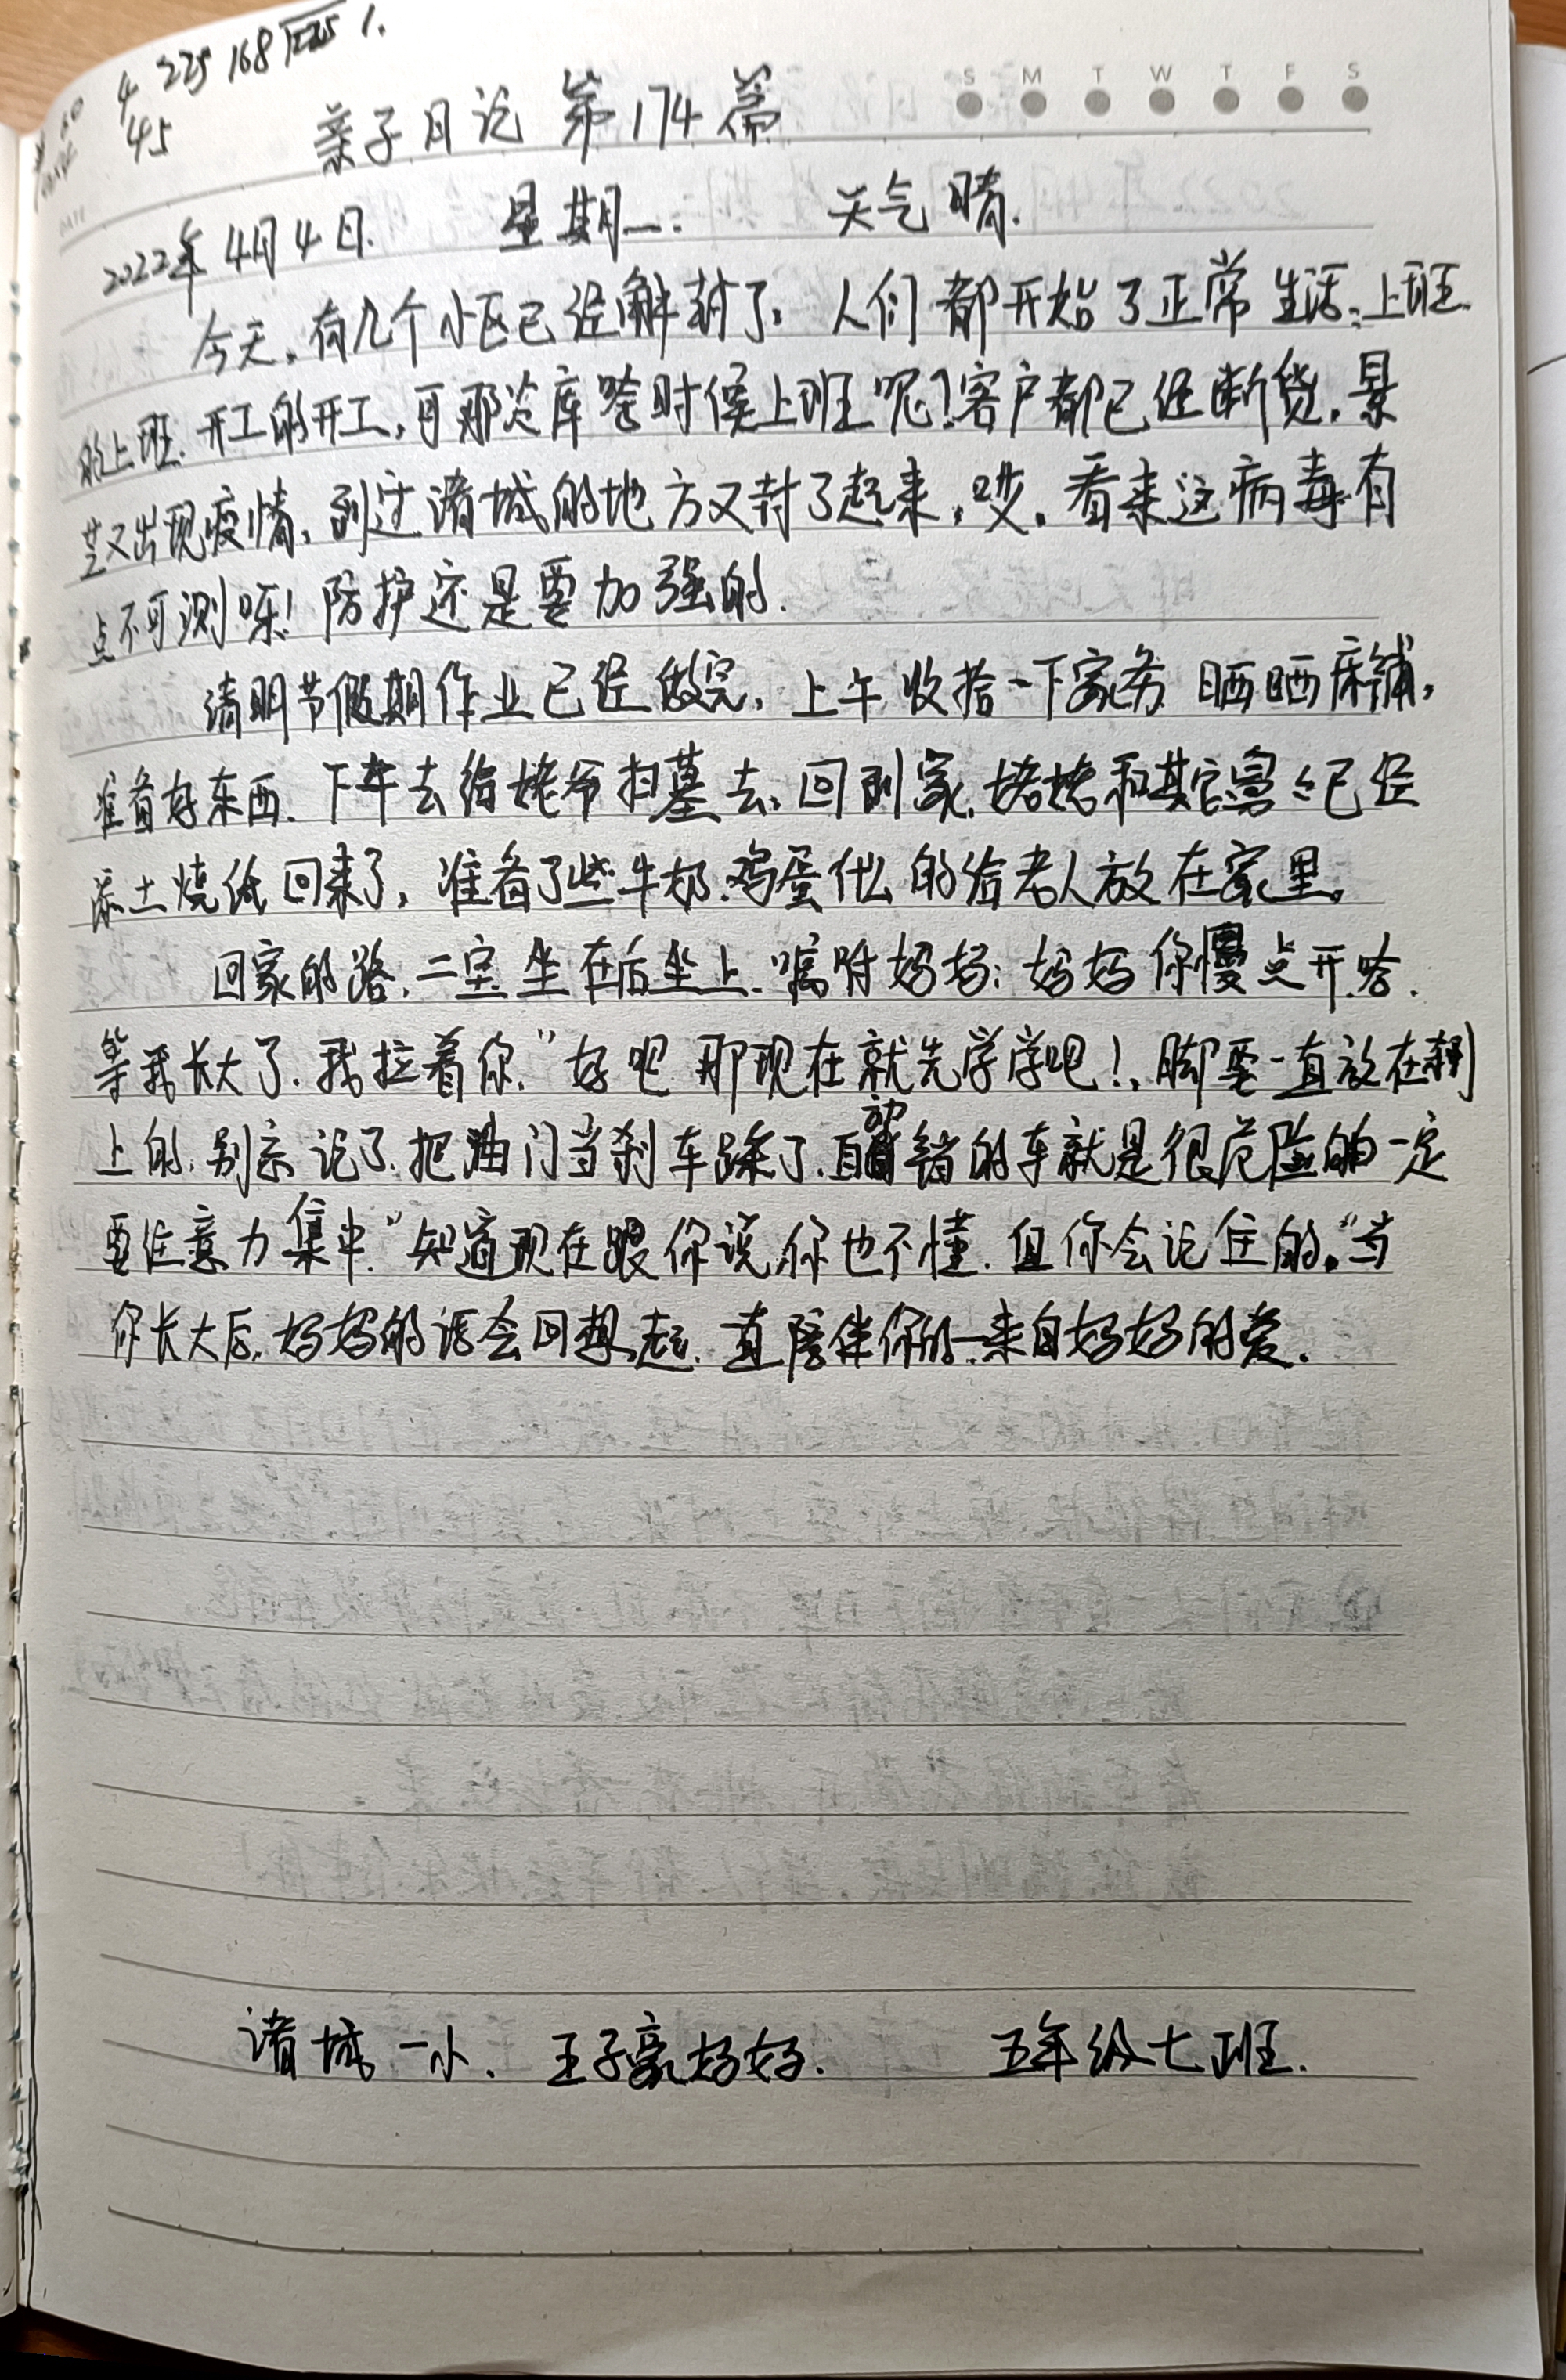 4 225 168
45
S M T W T F S
亲子日记 第174篇
DATE
2022年4月4日. 星期一. 天气晴.
今天,有几个小区已经解封了,人们都开始了正常生活,上班
的上班.开工的开工,可那冷库啥时候上班呢?客户都已经断货,景
芝又出现疫情,到过诸城的地方又封了起来,哎,看来这病毒有
点不可测呀!防护还是要加强的.
清明节假期作业已经做完,上午收拾一下家务 晒晒床铺,
准备好东西.下午去给姥爷扫墓去,回到家,姥姥和其它 已经
添土烧纸回来了,准备了些牛奶.鸡蛋什么的给老人放在家里。
回家的路,二宝坐在后坐上.嘱咐妈妈:妈妈你慢点开啥.
等我长大了.我拉着你."好吧 那现在就先学学吧!,脚要一直放在刹
上的,别忘记了.把油门当刹车踩了. 错的车就是很危险的一定
要注意力集中."知道现在跟你说,你也不懂.但你会记住的。"当
你长大后,妈妈的话会回想起.一直陪伴你的—来自妈妈的爱.
诸城一小. 王子豪妈妈. 五年级七班.